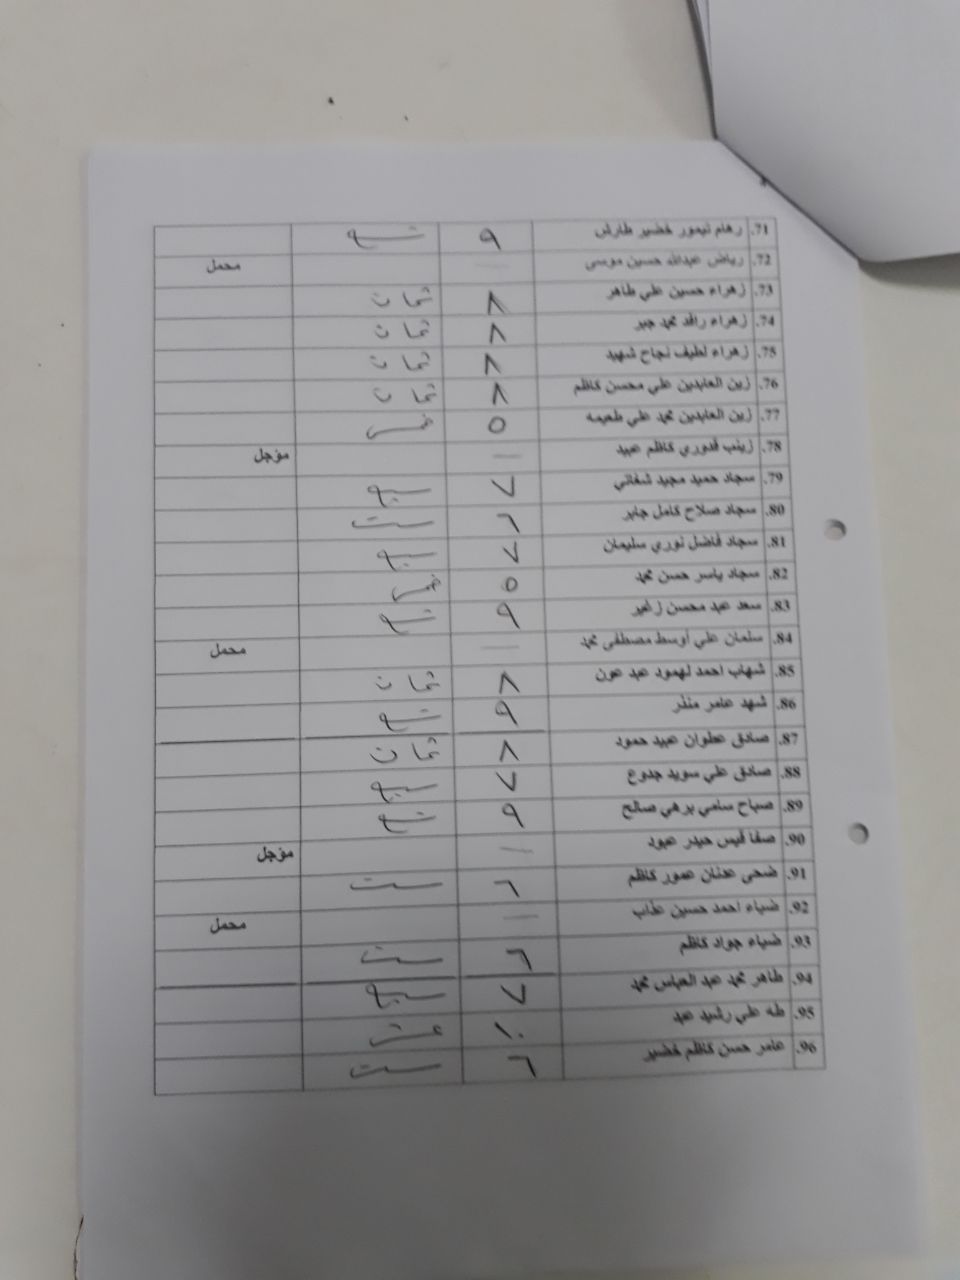 71. رهام تيمور خضير طارش ٩ تسع
72. رياض عبدالله حسين موسى — محمل
73. زهراء حسين علي طاهر ٨ ثمان
74. زهراء رافد محمد جبر ٨ ثمان
75. زهراء لطيف نجاح شهيد ٨ ثمان
76. زين العابدين علي محسن كاظم ٨ ثمان
77. زين العابدين محمد علي طعيمه ٥ خمس
78. زينب قدوري كاظم عبيد — مؤجل
79. سجاد حميد مجيد شغاتي ٧ سبع
80. سجاد صلاح كامل جابر ٦ ست
81. سجاد فاضل نوري سليمان ٧ سبع
82. سجاد ياسر حسن محمد ٥ خمس
83. سعد عبد محسن زغير ٩ تسع
84. سلمان علي أوسط مصطفى محمد — محمل
85. شهاب احمد لهمود عبد عون ٨ ثمان
86. شهد عامر منذر ٩ تسع
87. صادق عطوان عبيد حمود ٨ ثمان
88. صادق علي سويد جدوع ٧ سبع
89. صباح سامي برهي صالح ٩ تسع
90. صفا قيس حيدر عبود — مؤجل
91. ضحى عدنان عمور كاظم ٦ ست
92. ضياء احمد حسين عذاب — محمل
93. ضياء جواد كاظم ٦ ست
94. طاهر محمد عبد العباس محمد ٧ سبع
95. طه علي رشيد عبد ١٠ عشر
96. عامر حسن كاظم خضير ٦ ست